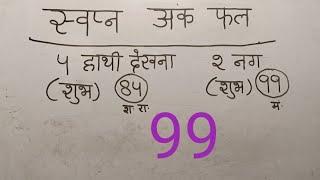 स्वप्न अंक फल
५ हाथी देखना २ नग
(शुभ) ८५ (शुभ) ९९
श. रा. मं.
99